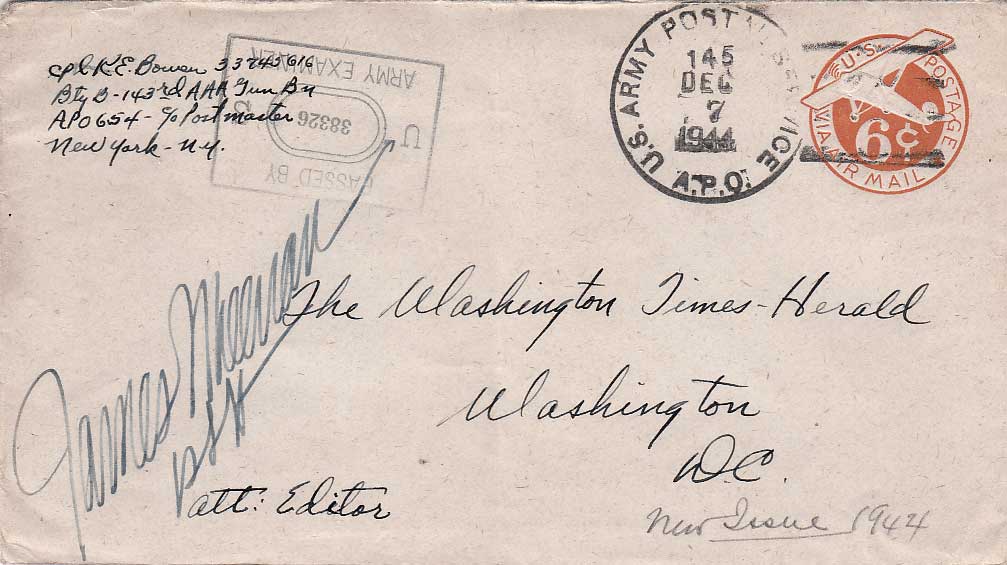 Cpl K.E. Bowen 33745616
Bty B-143rd AAA Gun Bn
APO 654 - c/o Postmaster
New York - N.Y.
PASSED BY
U
38326
ARMY EXAMINER
U.S. ARMY POSTAL SERVICE
145
DEC
7
1944
A.P.O.
U.S. POSTAGE
6¢
VIA AIR MAIL
The Washington Times-Herald
Washington
D.C.
James
Att: Editor
New Issue 1944